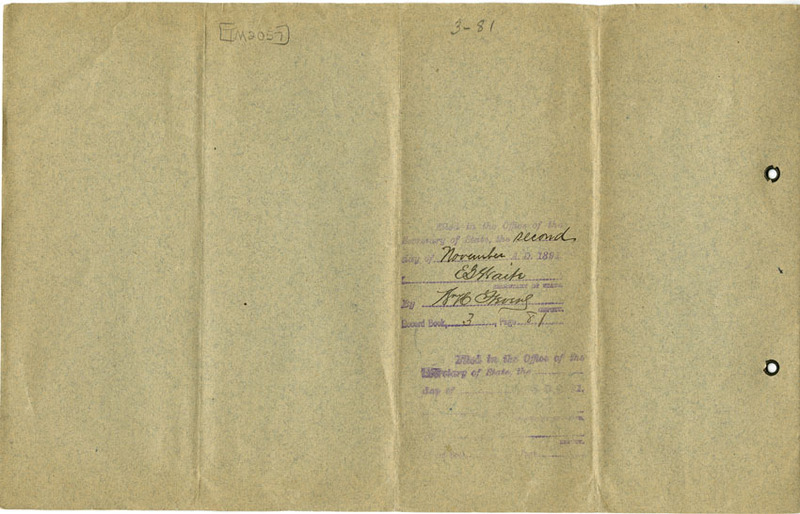 TM2057
3-81
Filed in the Office of the
Secretary of State, the second
day of November A.D. 189
E G Waite
SECRETARY OF STATE.
By Wm H
DEPUTY.
Record Book, 3, Page 81
Filed in the Office of the
Secretary of State, the
day of
DEPUTY.